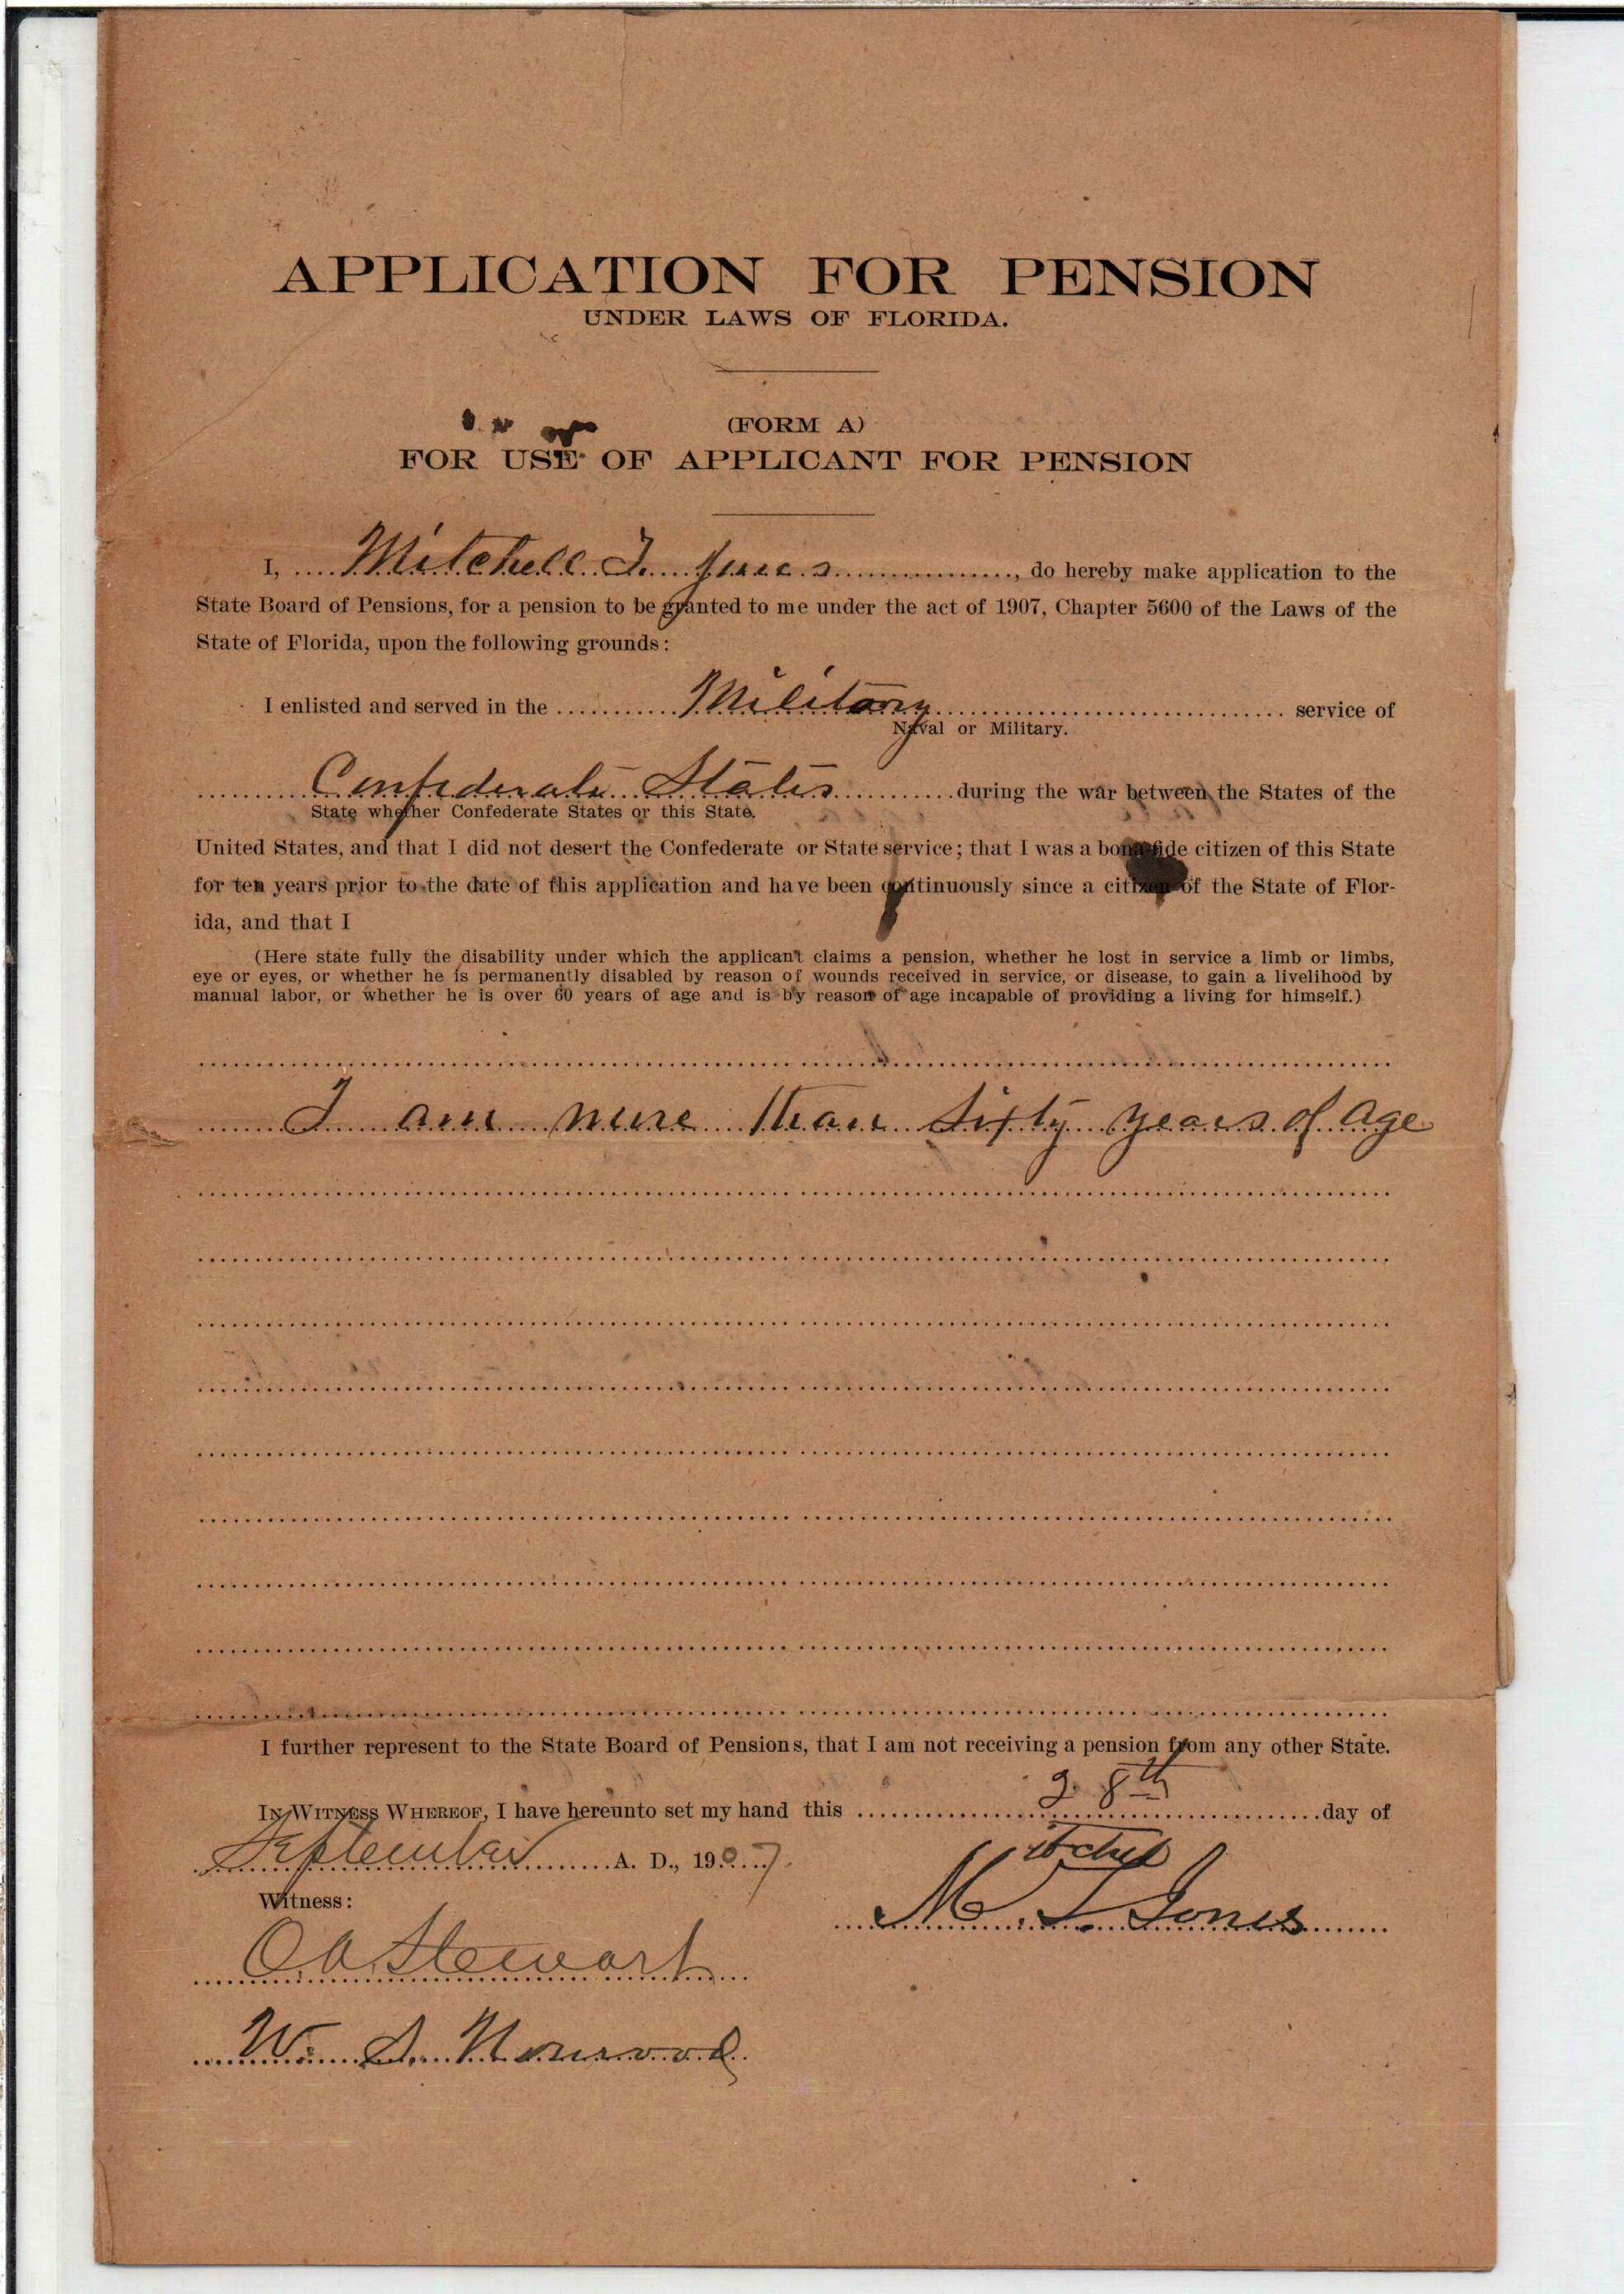 APPLICATION FOR PENSION
UNDER LAWS OF FLORIDA.
(FORM A)
FOR USE OF APPLICANT FOR PENSION
I, Mitchell I. Jones, do hereby make application to the
State Board of Pensions, for a pension to be granted to me under the act of 1907, Chapter 5600 of the Laws of the
State of Florida, upon the following grounds:
I enlisted and served in the Military service of
Naval or Military.
Confederate States during the war between the States of the
State whether Confederate States or this State.
United States, and that I did not desert the Confederate or State service; that I was a bona fide citizen of this State
for ten years prior to the date of this application and have been continuously since a citizen of the State of Flor-
ida, and that I
(Here state fully the disability under which the applicant claims a pension, whether he lost in service a limb or limbs,
eye or eyes, or whether he is permanently disabled by reason of wounds received in service, or disease, to gain a livelihood by
manual labor, or whether he is over 60 years of age and is by reason of age incapable of providing a living for himself.)
I am more than Sixty years of age
I further represent to the State Board of Pensions, that I am not receiving a pension from any other State.
IN WITNESS WHEREOF, I have hereunto set my hand this 28th day of
September A. D., 1907.
Witness:
M I Jones
O. A. Stewart
W. S. Norwood